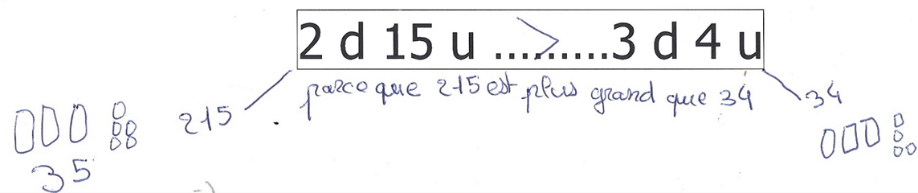 2 d 15 u ....>.....3 d 4 u
parce que 215 est plus grand que 34
215
34
35